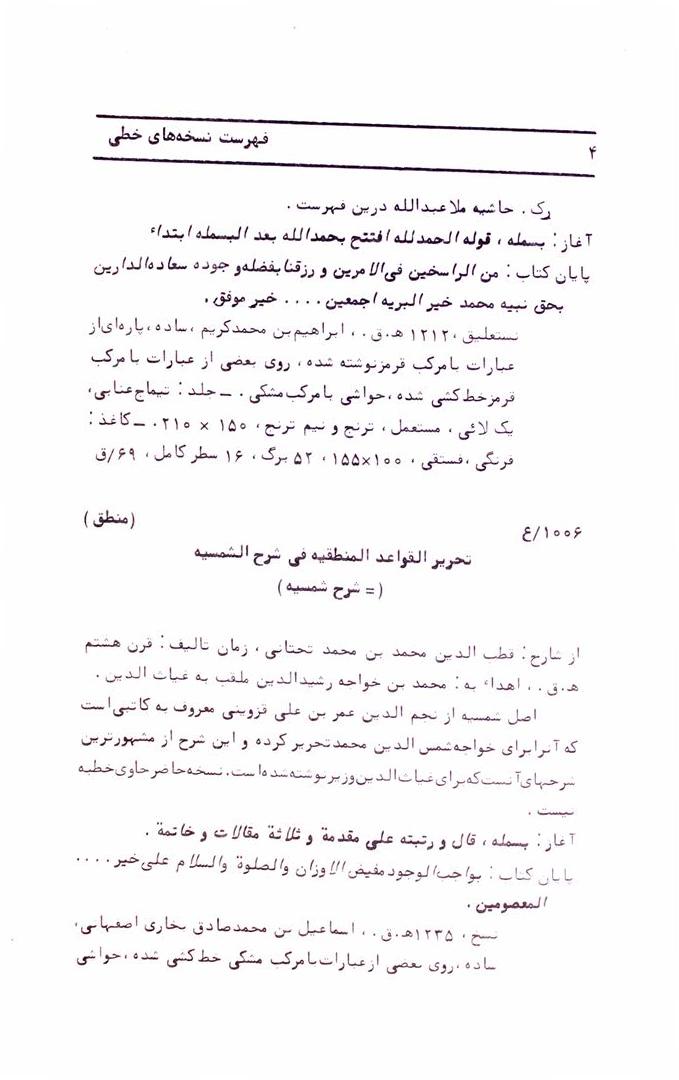 فهرست نسخه‌های خطی
۴
رک . حاشیه ملاعبدالله درین فهرست .
آغاز : بسمله ، قوله الحمدلله افتتح بحمدالله بعد البسمله ابتداء
پایان کتاب : من الراسخین فی الامرین و رزقنا بفضله و جوده سعاده الدارین
بحق نبیه محمد خیر البریه اجمعین . . . . خیر موفق .
نستعلیق ، ۱۲۱۲ ه‍ .ق . ، ابراهیم بن محمدکریم ، ساده ، پاره‌ای از
عبارات با مرکب قرمز نوشته شده ، روی بعضی از عبارات با مرکب
قرمز خط کشی شده ، حواشی با مرکب مشکی . ــ جلد : تیماج عنابی ،
یک لائی ، مستعمل ، ترنج و نیم ترنج ، ۱۵۰ × ۲۱۰ . ــ کاغذ :
فرنگی ، فستقی ، ۱۰۰×۱۵۵ ، ۵۲ برگ ، ۱۶ سطر کامل ، ۶۹/ق
۱۰۰۶/ع
(منطق)
تحریر القواعد المنطقیه فی شرح الشمسیه
(= شرح شمسیه)
از شارح : قطب الدین محمد بن محمد تحتانی ، زمان تالیف : قرن هشتم
ه‍ .ق . ، اهداء به : محمد بن خواجه رشیدالدین ملقب به غیاث الدین .
اصل شمسیه از نجم الدین عمر بن علی قزوینی معروف به کاتبی است
که آنرا برای خواجه شمس الدین محمد تحریر کرده و این شرح از مشهورترین
شرحهای آنست که برای غیاث الدین وزیر نوشته شده است . نسخه حاضر حاوی خطبه
نیست .
آغاز : بسمله ، قال و رتبته علی مقدمة و ثلاثة مقالات و خاتمة .
پایان کتاب : بواجب الوجود مفیض الاوزان والصلوة والسلام علی خیر . . . .
المعصومین .
نسخ ، ۱۲۳۵ه‍ .ق . ، اسماعیل بن محمدصادق بخاری اصفهانی ،
ساده ، روی بعضی از عبارات با مرکب مشکی خط کشی شده ، حواشی